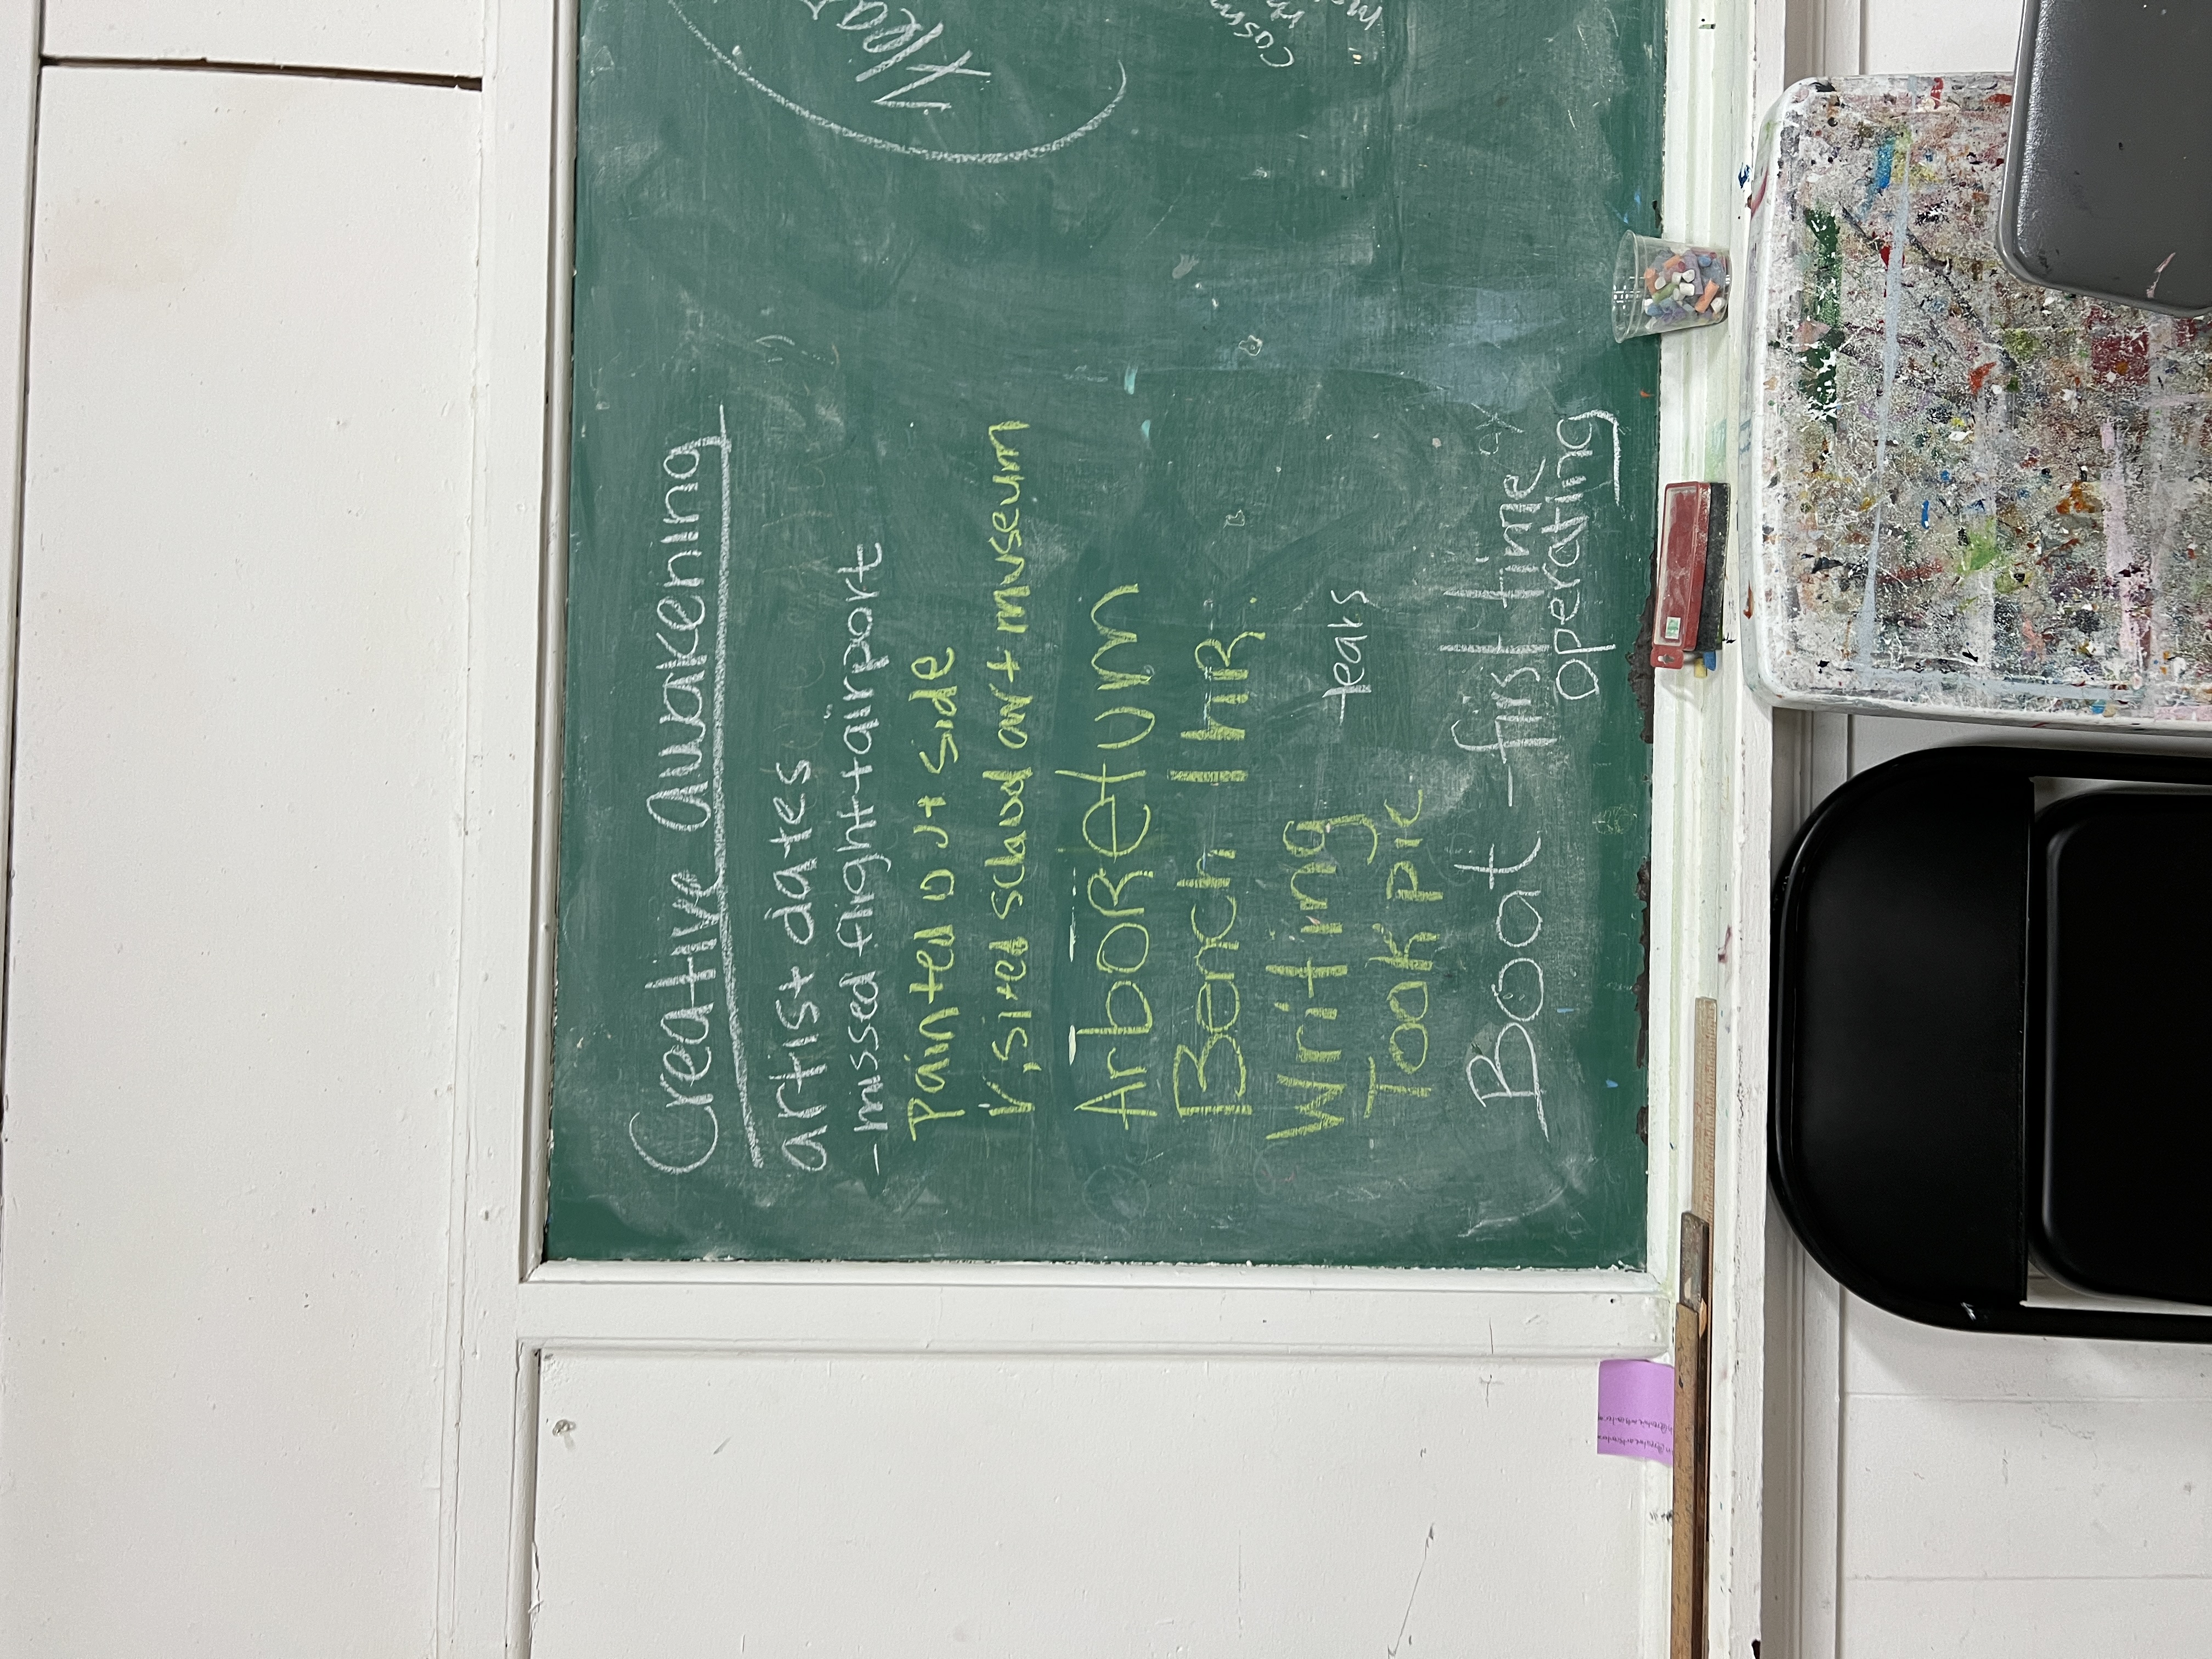 Creative Awakening
artist dates
-missed flight + airport
painted outside
Visited school art museum
ArboRetum
Bench 1 HR.
Writing tears
Took pic
Boat - first time
operating